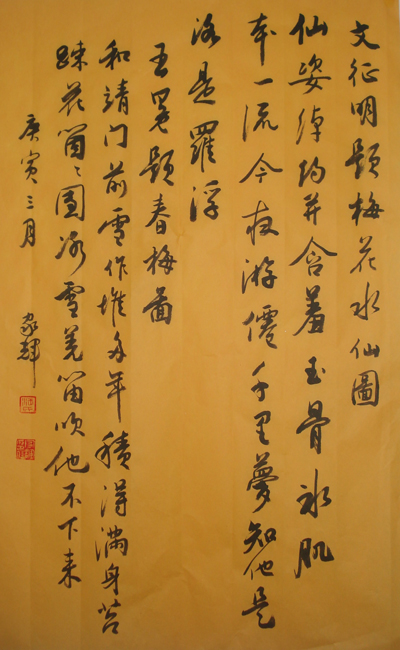 文征明题梅花水仙圖
仙姿绰约并含羞玉骨冰肌
本一流今夜游僊千里夢知他是
洛是羅浮
王冕题春梅啚
和靖门前雪作堆多年積得满身苔
疎花箇〻團冰雪羌笛吹他不下来
庚寅三月 家輝